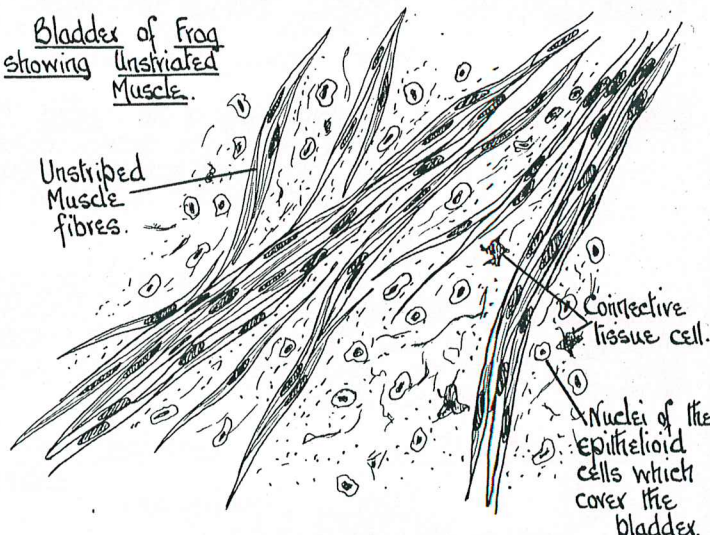 Bladder of Frog
showing Unstriated
Muscle.
Unstriped
Muscle
fibres.
Connective
tissue cell.
Nuclei of the
epithelioid
cells which
cover the
bladder.